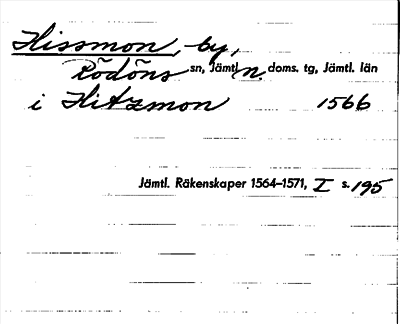 Hissmon, by,
Rödöns sn, Jämtl. n. doms. tg, Jämtl. län
i Hitzmon 1566
Jämtl. Räkenskaper 1564–1571, I s. 195